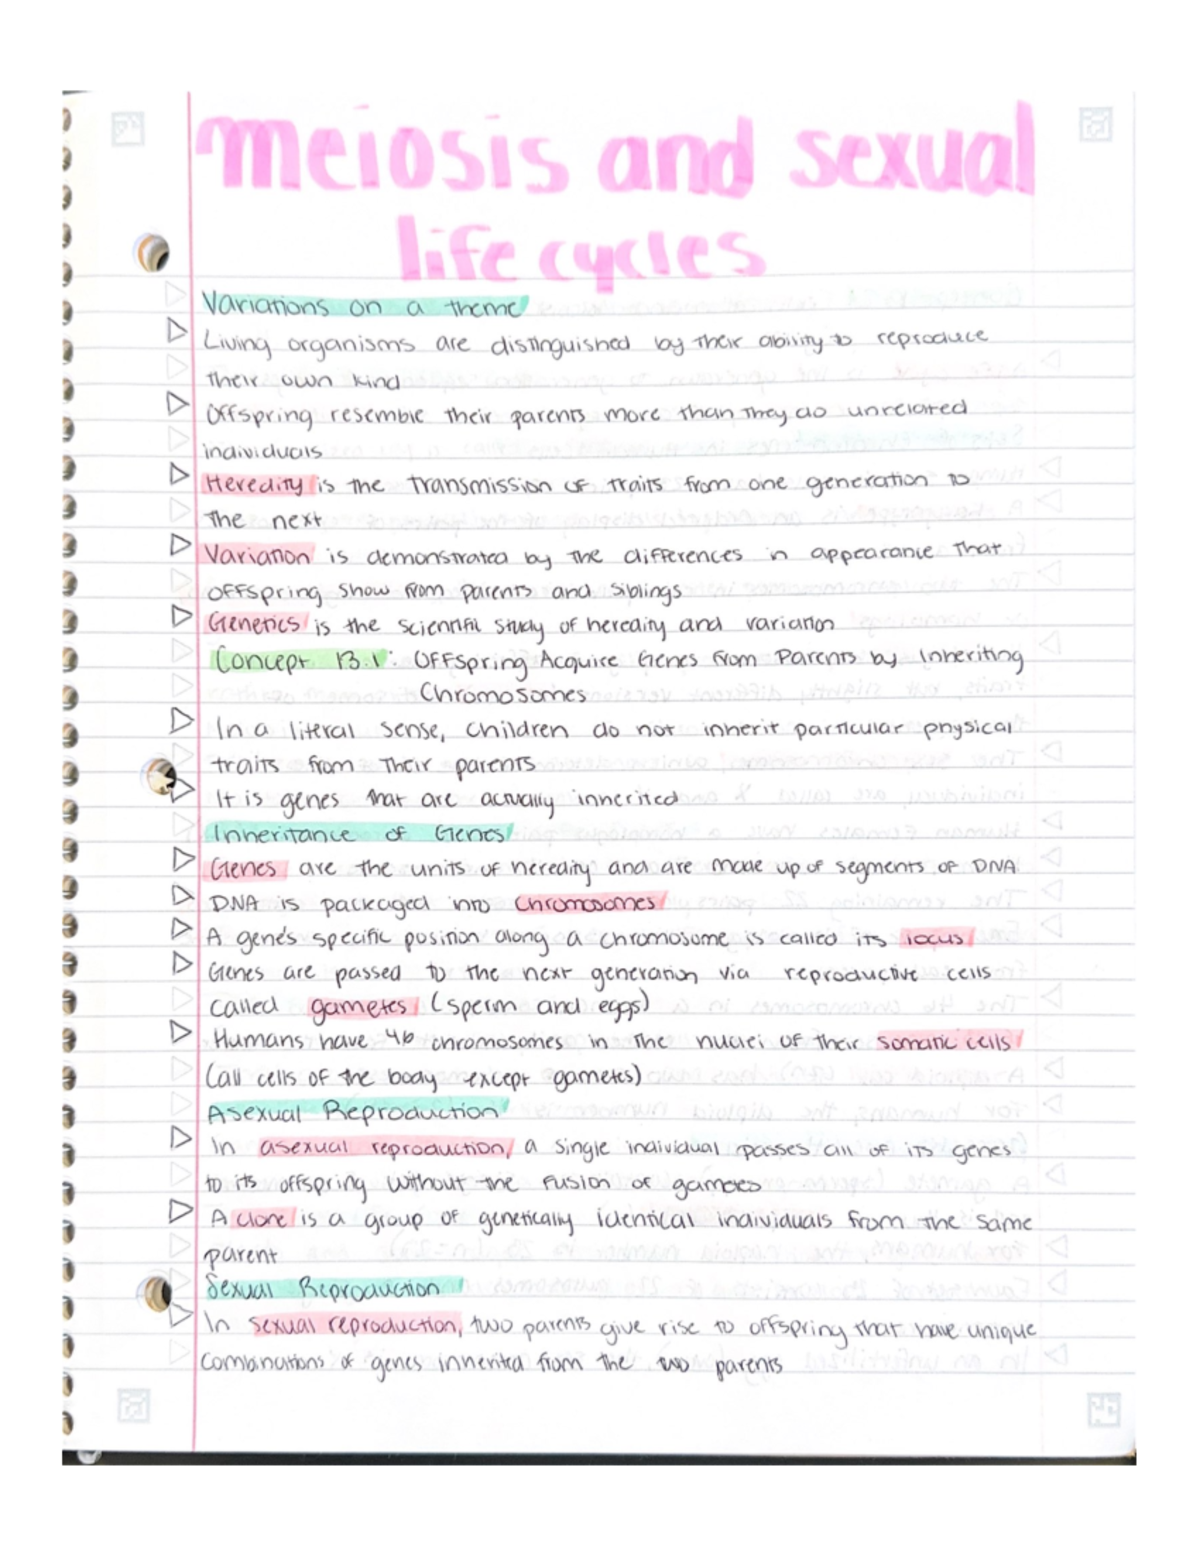 meiosis and sexual
life cycles
Variations on a theme
Living organisms are distinguished by their ability to reproduce
their own kind
Offspring resemble their parents more than they do unrelated
individuals
Heredity is the transmission of traits from one generation to
the next
Variation is demonstrated by the differences in appearance that
offspring show from parents and siblings
Genetics is the scientific study of heredity and variation
Concept 13.1: Offspring Acquire Genes from Parents by Inheriting
Chromosomes
In a literal sense, children do not inherit particular physical
traits from their parents
It is genes that are actually inherited
Inheritance of Genes
Genes are the units of heredity and are made up of segments of DNA
DNA is packaged into chromosomes
A gene's specific position along a chromosome is called its locus
Genes are passed to the next generation via reproductive cells
called gametes (sperm and eggs)
Humans have 46 chromosomes in the nuclei of their somatic cells
(all cells of the body except gametes)
Asexual Reproduction
In asexual reproduction, a single individual passes all of its genes
to its offspring without the fusion of gametes
A clone is a group of genetically identical individuals from the same
parent
Sexual Reproduction
In sexual reproduction, two parents give rise to offspring that have unique
combinations of genes inherited from the two parents